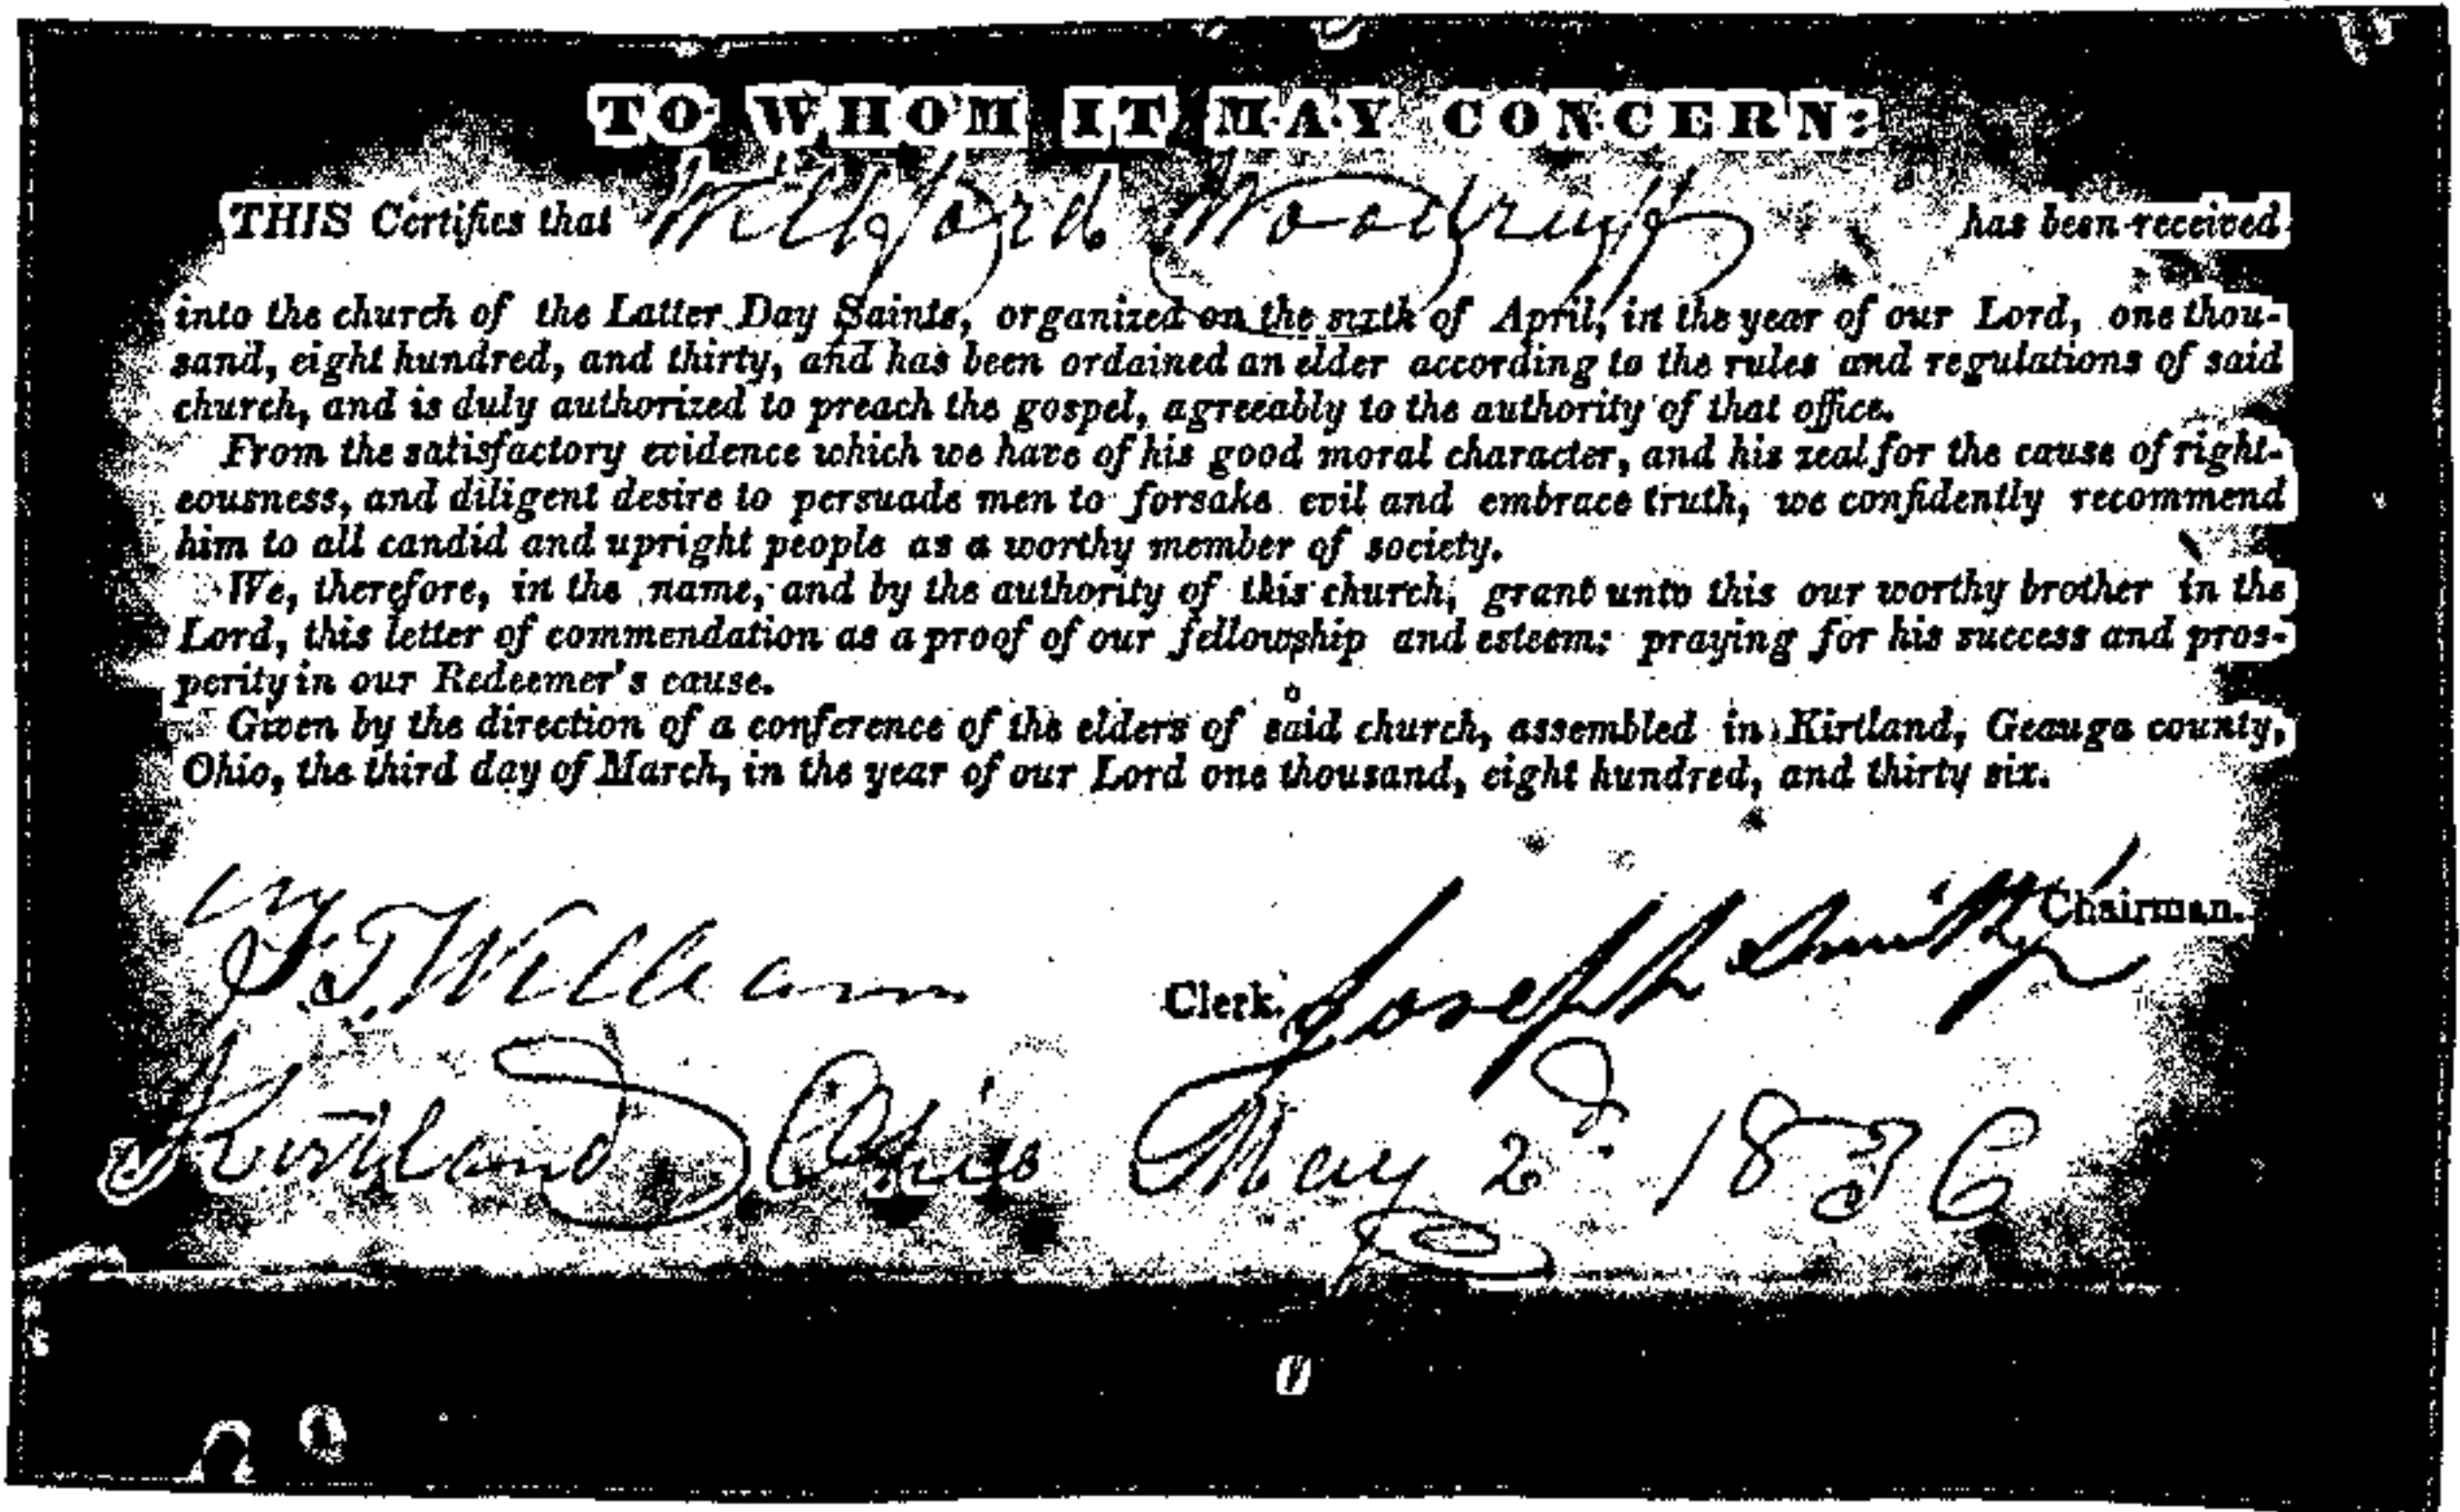 TO WHOM IT MAY CONCERN:
THIS Certifies that Willford Woodruff has been received
into the church of the Latter Day Saints, organized on the sixth of April, in the year of our Lord, one thou-
sand, eight hundred, and thirty, and has been ordained an elder according to the rules and regulations of said
church, and is duly authorized to preach the gospel, agreeably to the authority of that office.
From the satisfactory evidence which we have of his good moral character, and his zeal for the cause of right-
eousness, and diligent desire to persuade men to forsake evil and embrace truth, we confidently recommend
him to all candid and upright people as a worthy member of society.
We, therefore, in the name, and by the authority of this church, grant unto this our worthy brother in the
Lord, this letter of commendation as a proof of our fellowship and esteem: praying for his success and pros-
perity in our Redeemer's cause.
Given by the direction of a conference of the elders of said church, assembled in Kirtland, Geauga county,
Ohio, the third day of March, in the year of our Lord one thousand, eight hundred, and thirty six.
Joseph Smith Chairman.
F. G. Williams Clerk.
Kirtland Ohio May 2d 1836